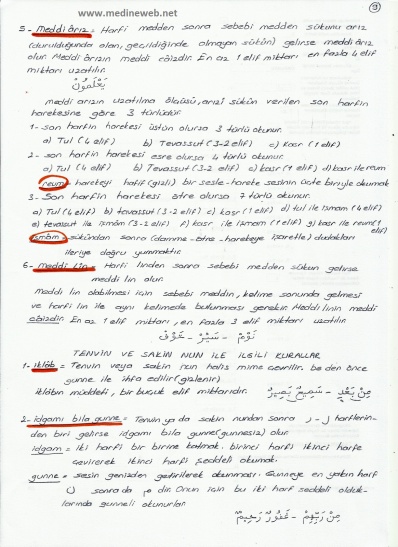 www.medineweb.net
9
5- Meddi Arız = Harfi medden sonra sebebi medden sükunu arız
(durulduğunda olan, geçildiğinde olmayan sükün) gelirse meddi arız
olur. Meddi Arızın meddi câizdir. En az 1 elif miktarı en fazla 4 elif
miktarı uzatılır.
يَعْلَمُونَ
meddi arızın uzatılma ölçüsü, arızî sükün verilen son harfin
harekesine göre 3 türlüdür.
1- son harfin harekesi üstün olursa 3 türlü okunur.
a) Tul (4 elif) b) Tevassut (3-2 elif) c) Kasr (1 elif)
2- son harfin harekesi esre olursa 4 türlü okunur.
a) Tul (4 elif) b) Tevassut (3-2 elif) c) kasr (1 elif) d) kasr ile revm
revm = harekeyi hafif (gizli) bir sesle-harete sesinin üçte biriyle okumak
3- Son harfin harekesi ötre olursa 7 türlü okunur.
a) Tul (4 elif) b) tavassut (3-2 elif) c) kasr (1 elif) d) tul ile ismam (4 elif)
e) tevassut ile ismâm (3-2 elif) f) kasr ile ismam (1 elif) g) kasr ile revm (1 elif)
ismâm = sükündan sonra (damme-ötre-harekeye işaretle) dudakları
ileriye doğru yummaktır.
6- Meddi Lin = Harfi linden sonra sebebi medden sükun gelirse
meddi lin olur.
meddi lin olabilmesi için sebebi meddin, kelime sonunda gelmesi
ve harfi lin ile aynı kelimede bulunması gerekir. Meddi linin meddi
câizdir. En az 1 elif miktarı, en fazla 3 elif miktarı uzatılır.
نَوْمٌ - سَيْرٌ - خَوْفٌ
TENVİN VE SAKİN NUN İLE İLGİLİ KURALLAR
1- iklâb = Tenvin veya sakin nun halis mime çevrilir. be den önce
gunne ile ihfa edilir (gizlenir)
iklâbın müddeti, bir buçuk elif miktarıdır.
مِنْ بَعْدِ - سَمِيعٌ بَصِيرٌ
2- idgamı bila gunne = Tenvin ya da sakin nundan sonra ل - ر harflerin-
den biri gelirse idgamı bila gunne (gunnesiz) olur
idgam = iki harfi bir birine katmak. birinci harfi ikinci harfe
çevirerek ikinci harfi şeddeli okumak.
gunne = sesin genizden getirilerek okunması. Gunneye en yakın harf
ن sonra da م dir. Onun için bu iki harf şeddeli olduk-
larında gunneli okunurlar.
مِنْ رَبِّهِمْ - غَفُورٌ رَحِيمٌ